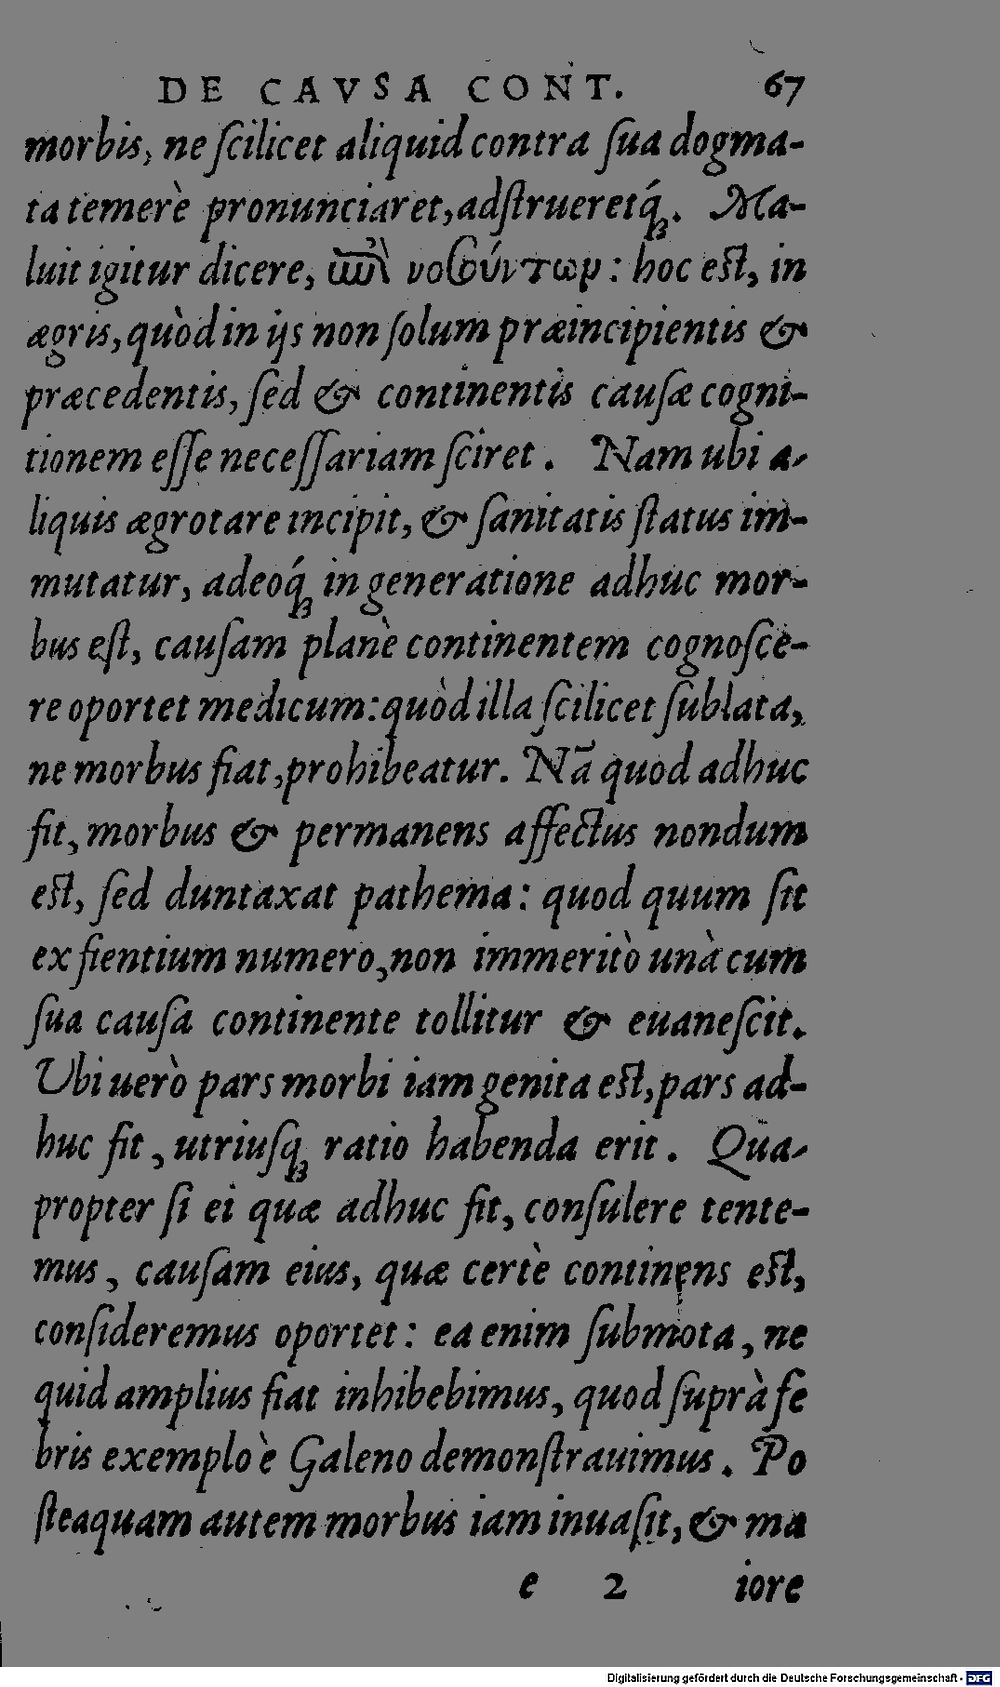 DE CAVSA CONT. 67
morbis, ne ſcilicet aliquid contra ſua dogma-
ta temerè pronunciaret, adſtrueretq́ꝫ. Ma-
luit igitur dicere, ἐπὶ νοσούντων: hoc eſt, in
ægris, quòd in ijs non ſolum præincipientis &
præcedentis, ſed & continentis cauſæ cogni-
tionem eſſe neceſſariam ſciret. Nam ubi a-
liquis ægrotare incipit, & ſanitatis ſtatus im-
mutatur, adeoq́ꝫ in generatione adhuc mor-
bus eſt, cauſam planè continentem cognoſce-
re oportet medicum: quòd illa ſcilicet ſublata,
ne morbus fiat, prohibeatur. Nā quod adhuc
fit, morbus & permanens affectus nondum
eſt, ſed duntaxat pathema: quod quum ſit
ex fientium numero, non immeritò unà cum
ſua cauſa continente tollitur & euaneſcit.
Ubi uerò pars morbi iam genita eſt, pars ad-
huc fit, utriuſqꝫ ratio habenda erit. Qua-
propter ſi ei quæ adhuc fit, conſulere tente-
mus, cauſam eius, quæ certè continens eſt,
conſideremus oportet: ea enim ſubmota, ne
quid amplius fiat inhibebimus, quod ſuprà fe
bris exemplo è Galeno demonſtrauimus. Po
ſteaquam autem morbus iam inuaſit, & ma
e 2 iore
Digitalisierung gefördert durch die Deutsche Forschungsgemeinschaft - DFG